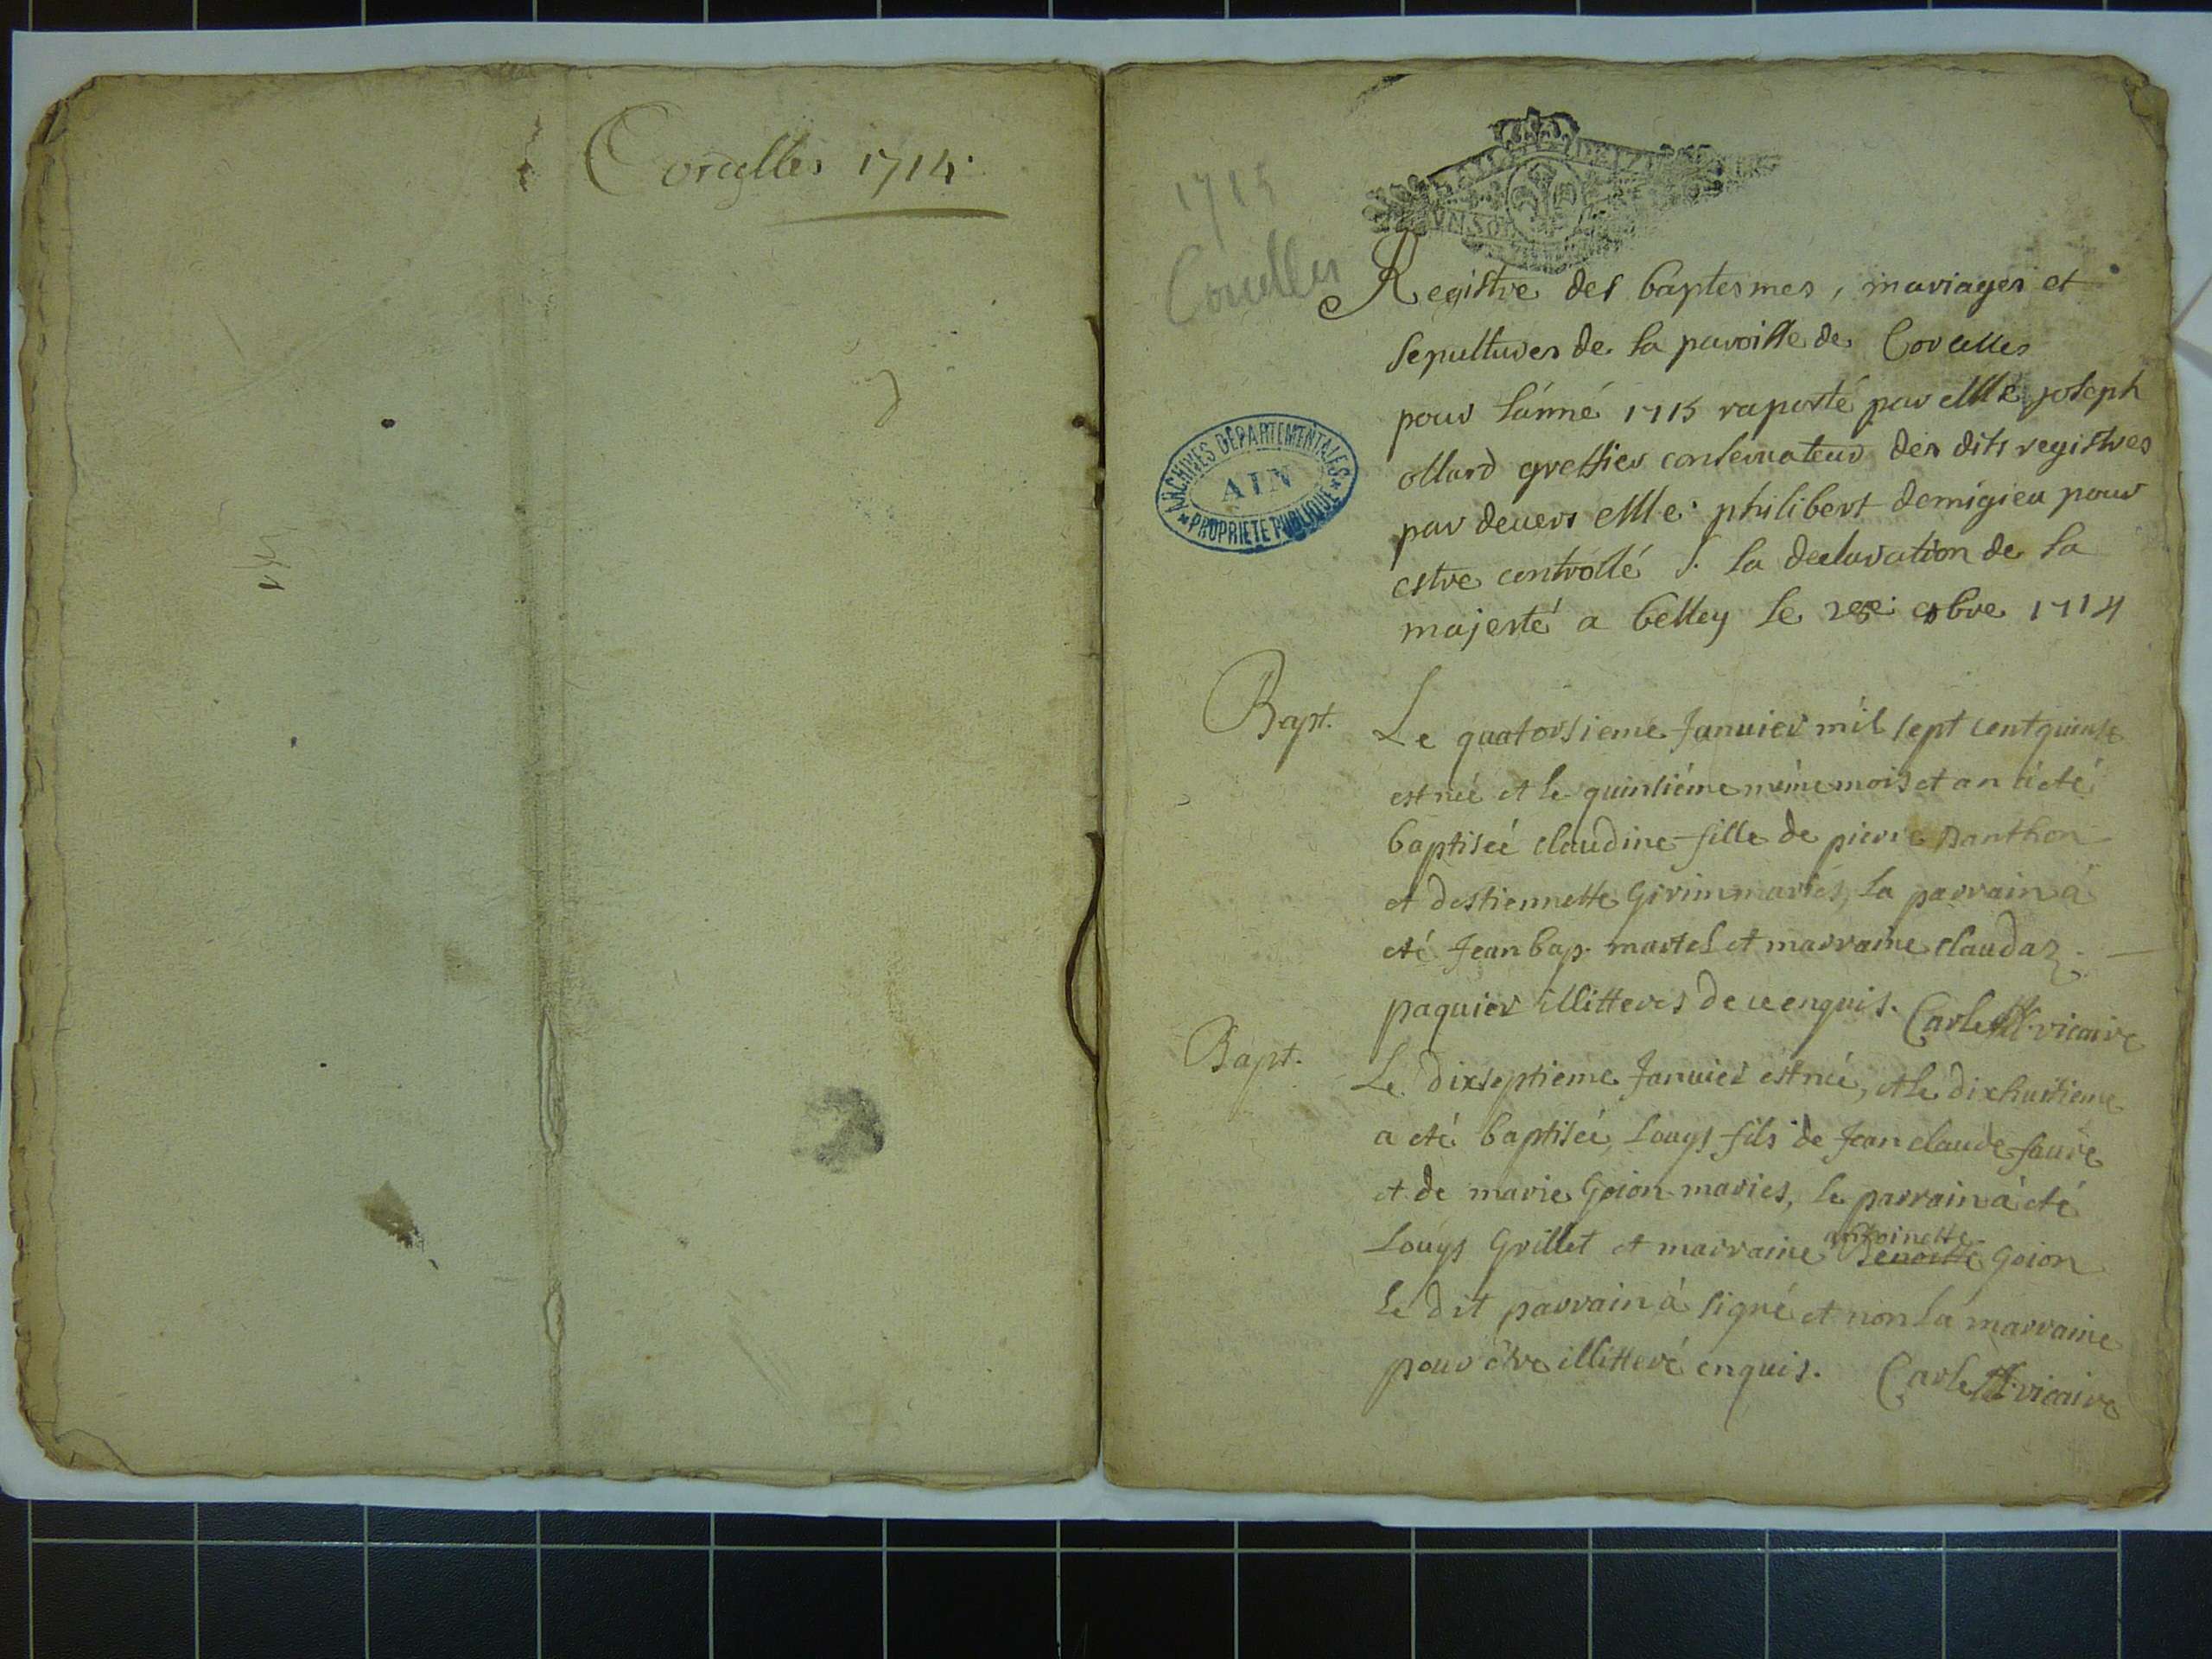 Corcelles 1714.
1715
Corcelles
UN SOL
ARCHIVES DEPARTEMENTALES
AIN
PROPRIETE PUBLIQUE
Registre des baptesmes, mariages et
sepultures de la paroisse de Corcelles
pour lánné 1715 raporté par Me joseph
ollard greffier conseruateur des dits registres
par deuers Me. philibert demigieu pour
estre controllé S. la declaration de sa
majesté a belley le 1714
Bapt.
Le quatorsieme Januier mil sept cent quinse
est neé et le quinsiéme méme mois et an à eté
baptiseé claudine fille de pierre Banthon
et destiennette Girin mariés, la parrain à
eté Jean bap. martel et marraine claudaz
paquier illitterés de ce enquis. Carle vicaire
Bapt.
Le dixseptieme Januier est neé, et le dixhuitieme
a eté baptiseé, Louys fils de Jean claude faure
et de marie Goion mariés, le parrain à eté
antoinette
Louys Grillet et marraine Benoitte Goion
le dit parrain à signé et non la marraine
pour étre illitteré enquis. Carle vicaire